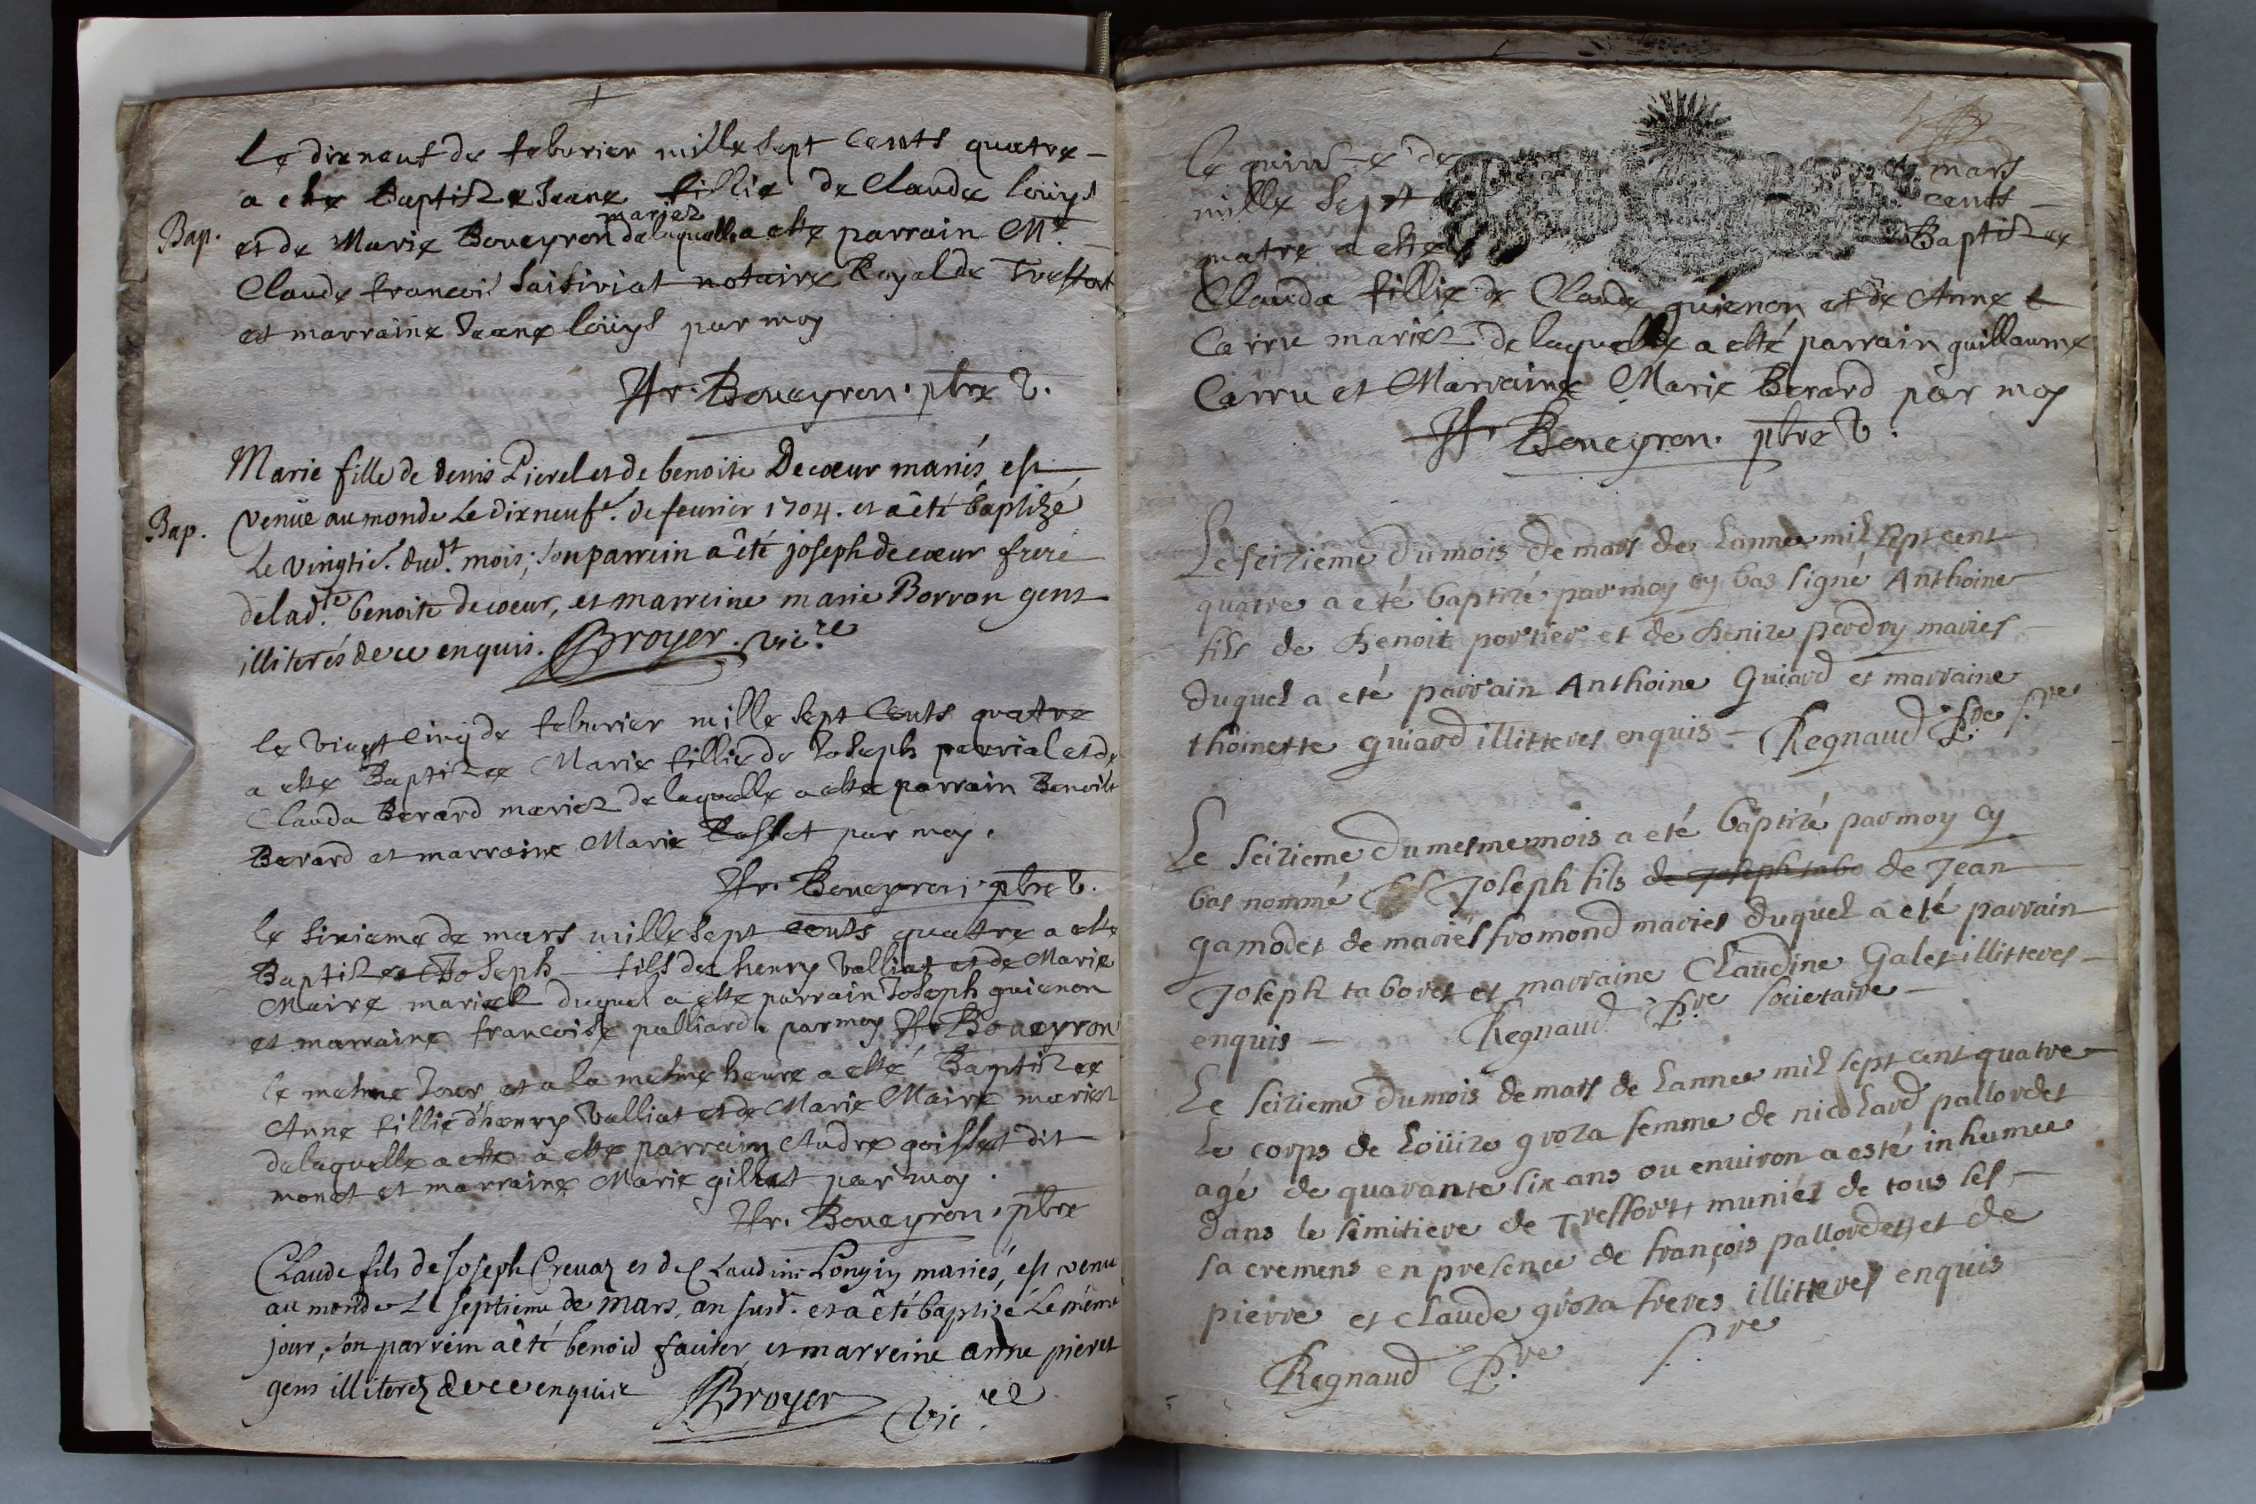 le dixneuf de feburier mille sept cents quatre –
a este Baptizee Jeane fillie de Claude loüys
Bap. et de Marie Boveyron mariez delaquelle a este parrain Mr.
Claude francois Saisiriat notaire Royal de Treffort
et marraine Jeane loüys par moy
Fr. Boveyron. pbre V.
Marie fille de denis Pierel et de benoite Decœur mariés, est
Bap. venüe au monde le dixneufe. de feurier 1704. et a êté baptizé
le vingtie. dudt. mois; son parrein a êté joseph decœur frere
deladte. benoite decoeur, et marreine marie Borron gens
illiterés de ce enquis. Broyer. vicre
le vingt cinq de feburier mille sept Cents quatre
a este Baptizee Marie fillie de Joseph perrial et de
Clauda Berard mariez de laquelle a este parrain Benoist
Berard et marraine Marie Rosset par moy.
Fr. Boveyron. pbre V.
le sixieme de mars mille sept cents quatre a este
Baptizee Joseph – fils de henry Valliat et de Marie
Maire mariez duquel a este parrain Joseph guienon
et marraine francoise palliard. par moy Fr Boveyron
le mesme Jour et a la mesme heure a esté Baptizee
Anne fillie d'henry Valliat et de Marie Maire mariez
delaquelle a este a este parrain Andre goisset dit
monet et marraine Marie gillet par moy.
Fr. Boveyron. pbre
Claude fils de Joseph Crevaz et de Claudine Longin mariés, est venu
au monde le septieme de mars, an susd. et a êté baptizé le même
jour, son parrein a êté benoid fauter, et marreine anne pieret
gens illiterez de ce enquis Broyer vicre
le quinz–e de mars
mille sept cents –
quatre a este Baptizee
Clauda fillie de Claude guienon et de Anne
Carru mariez de laquelle a esté parrain guillaume
Carru et Marraine Marie Berard par moy
Fr Boveyron. pbre V.
Le seizieme du mois de mars de lannee mil sept cent
quatre a eté baptizé par moy cy bas signé Anthoine
fils de Benoit portier et de Denize perdry maries –
duquel a eté parrain Anthoine Guiard et marraine
thoinette guiard illitteres enquis – Regnaud Pbre s.re
Le seizieme du mesme mois a eté baptizé par moy cy
bas nommé Joseph fils de Joseph tabo de Jean
gamodet de maries fromond maries duquel a eté parrain
Joseph taboret et marraine Claudine Galet illitteres –
enquis – Regnaud P.re societaire –
Le seizieme du mois de mars de lannee mil sept cent quatre
le corps de Loüize groza femme de nicolard pallordet
agé de quarante six ans ou environ a esté inhumee
dans le simitiere de Treffort muniés de tous ses –
sacremens en presence de françois pallordet, et de
pierre et claude groza freres illitteres enquis
Regnaud P.re s.re